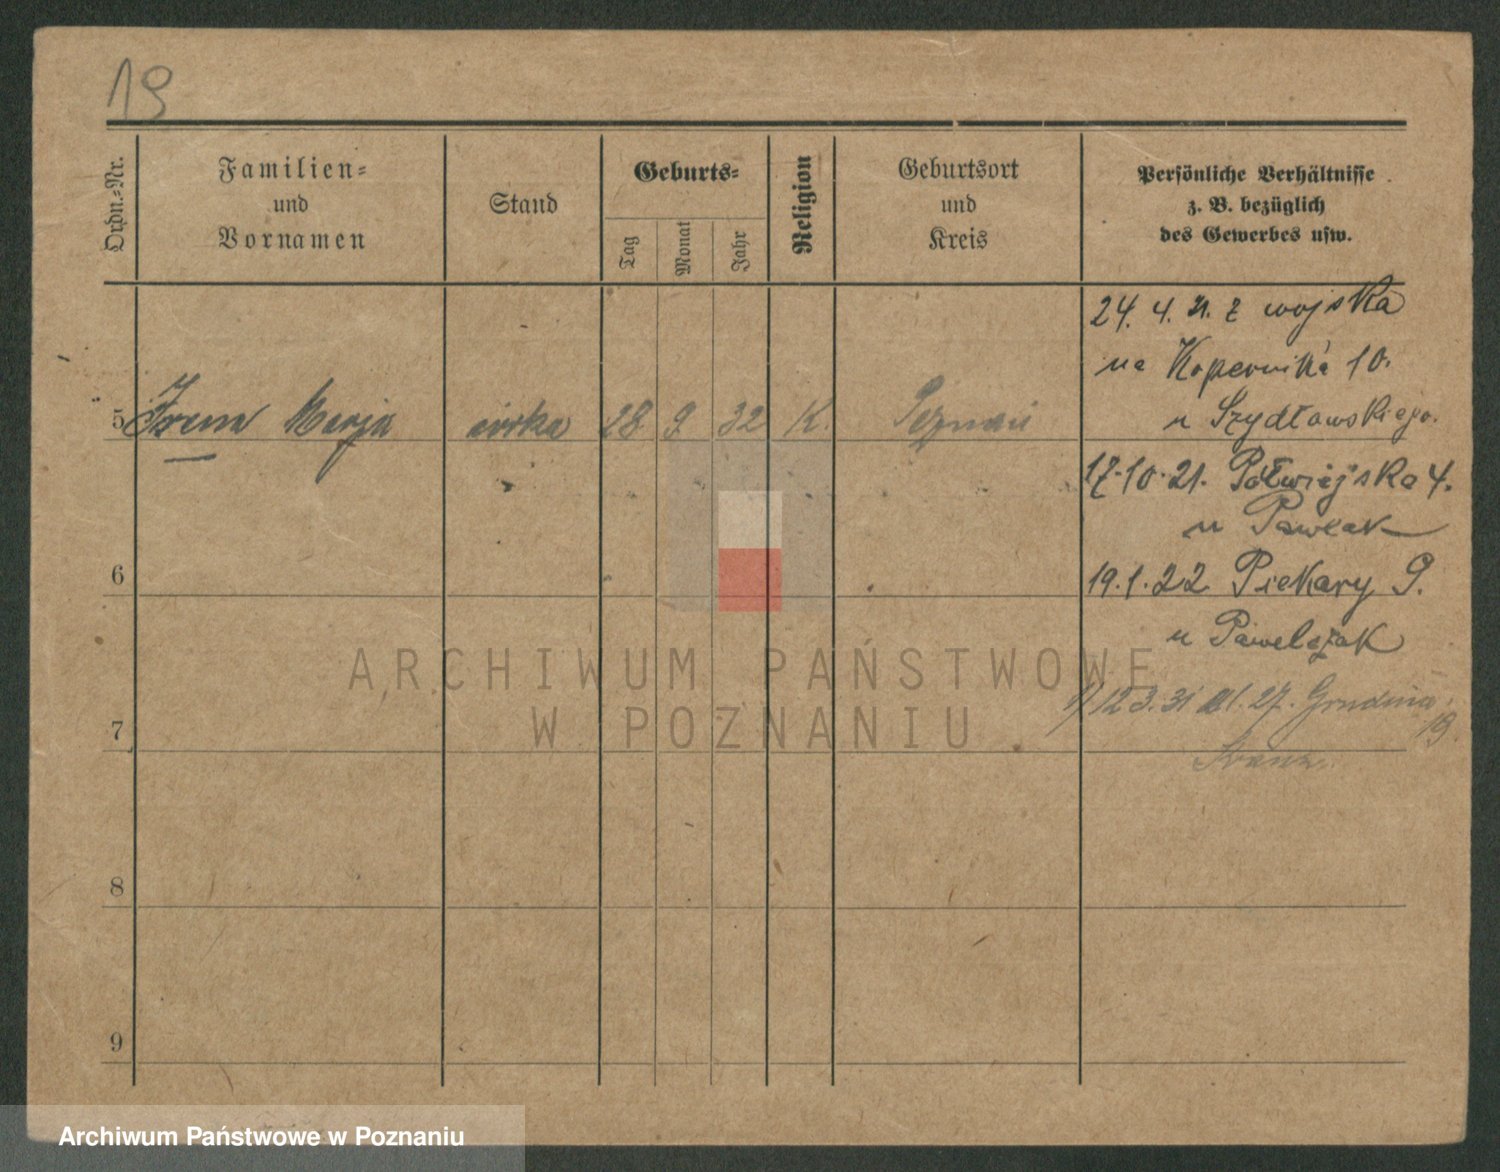 19
Ordn.-Nr.
Familien-
und
Vornamen
Stand
Geburts-
Tag
Monat
Jahr
Religion
Geburtsort
und
Kreis
Persönliche Verhältnisse
z. B. bezüglich
des Gewerbes usw.
24. 4. 21. z wojska
na Kopernika 10.
u Szydłowskiego.
5 Irena Marja córka 28 9 32 K. Poznań
17.10.21. Półwiejska 4.
u Pawlak
6
19.1.22 Piekary 9.
u Pawelczak
ARCHIWUM PAŃSTWOWE
W POZNANIU
12 3. 31 27. Grudnia
19.
7
8
9
Archiwum Państwowe w Poznaniu